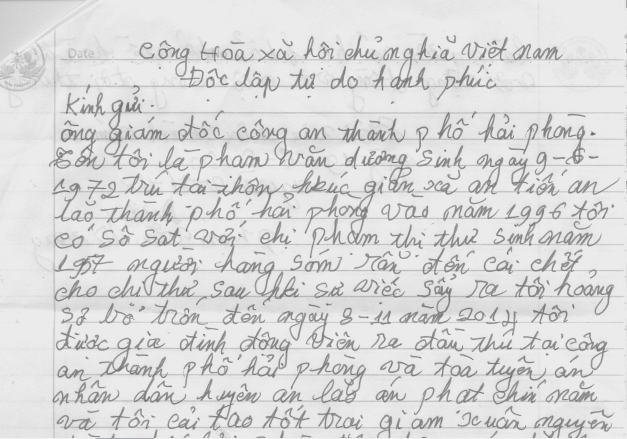 Date
cộng Hòa xã hội chủ nghiã việt nam
Độc lập tự do hanh phúc
Kính gửi:
ông giám đốc công an thành phố hải phong.
Tên tôi là pham văn dương sinh ngày 9-6-
1972 trú tai thôn khúc giản xã an tiến an
lao thành phố hải phong vào năm 1996 tôi
có sô sat với chi pham thi thư sinh năm
1957 người hang sóm rẫn đến cái chết
cho chi thư sau khi sư viêc sẩy ra tôi hoảng
sơ bỏ trôn đến ngày 8-11 năm 2014 tôi
đươc gia đình đông viên ra đầu thú tai công
an thành phố hải phong và toà tuyên án
nhân dân huyên an lão án phat chín năm
và tôi cải tao tốt trai giam xuân nguyên